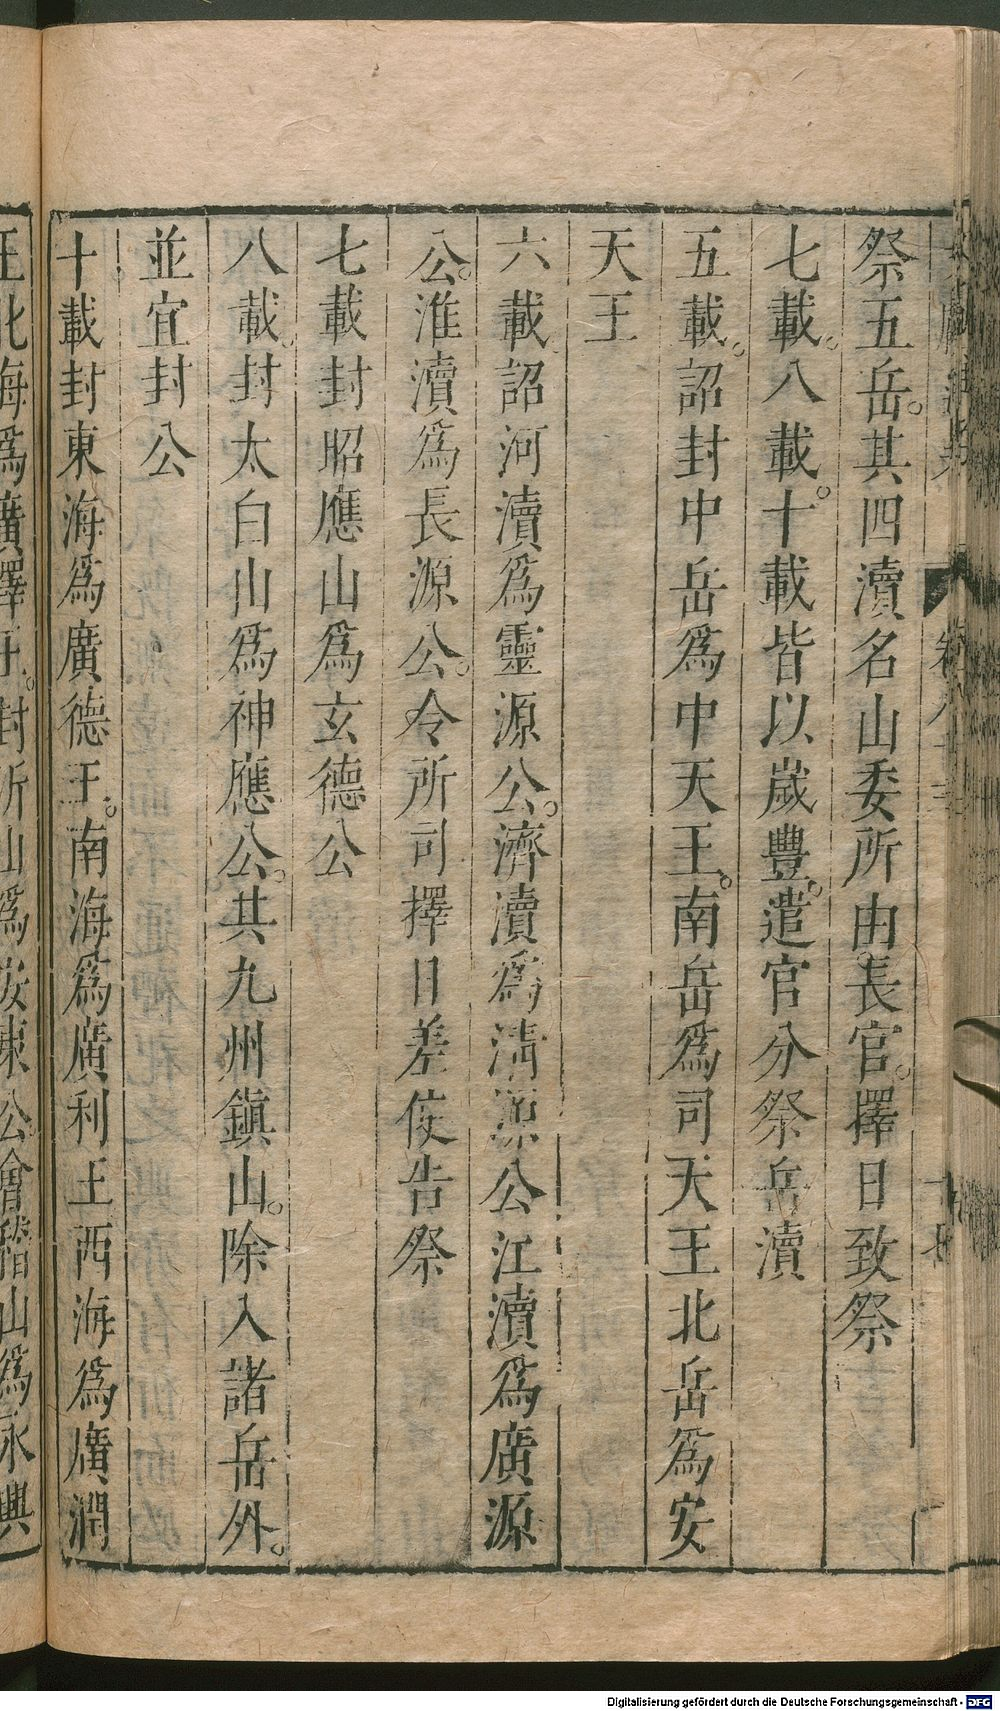 祭五岳。其四瀆名山委所由長官。擇日致祭
七載。八載。十載皆以歲豐。遣官分祭岳瀆
五載。詔封中岳爲中天王。南岳爲司天王北岳爲安
天王
六載詔河瀆爲靈源公。濟瀆爲清源公江瀆爲廣源
公。淮瀆爲長源公。令所司擇日差使告祭
七載封昭應山爲玄德公
八載。封太白山爲神應公。其九州鎮山。除入諸岳外。
並宜封公
十載封東海爲廣德王。南海爲廣利王西海爲廣潤
王北海爲廣澤王。封沂山爲安東公會稽山爲永興
Digitalisierung gefördert durch die Deutsche Forschungsgemeinschaft - DFG